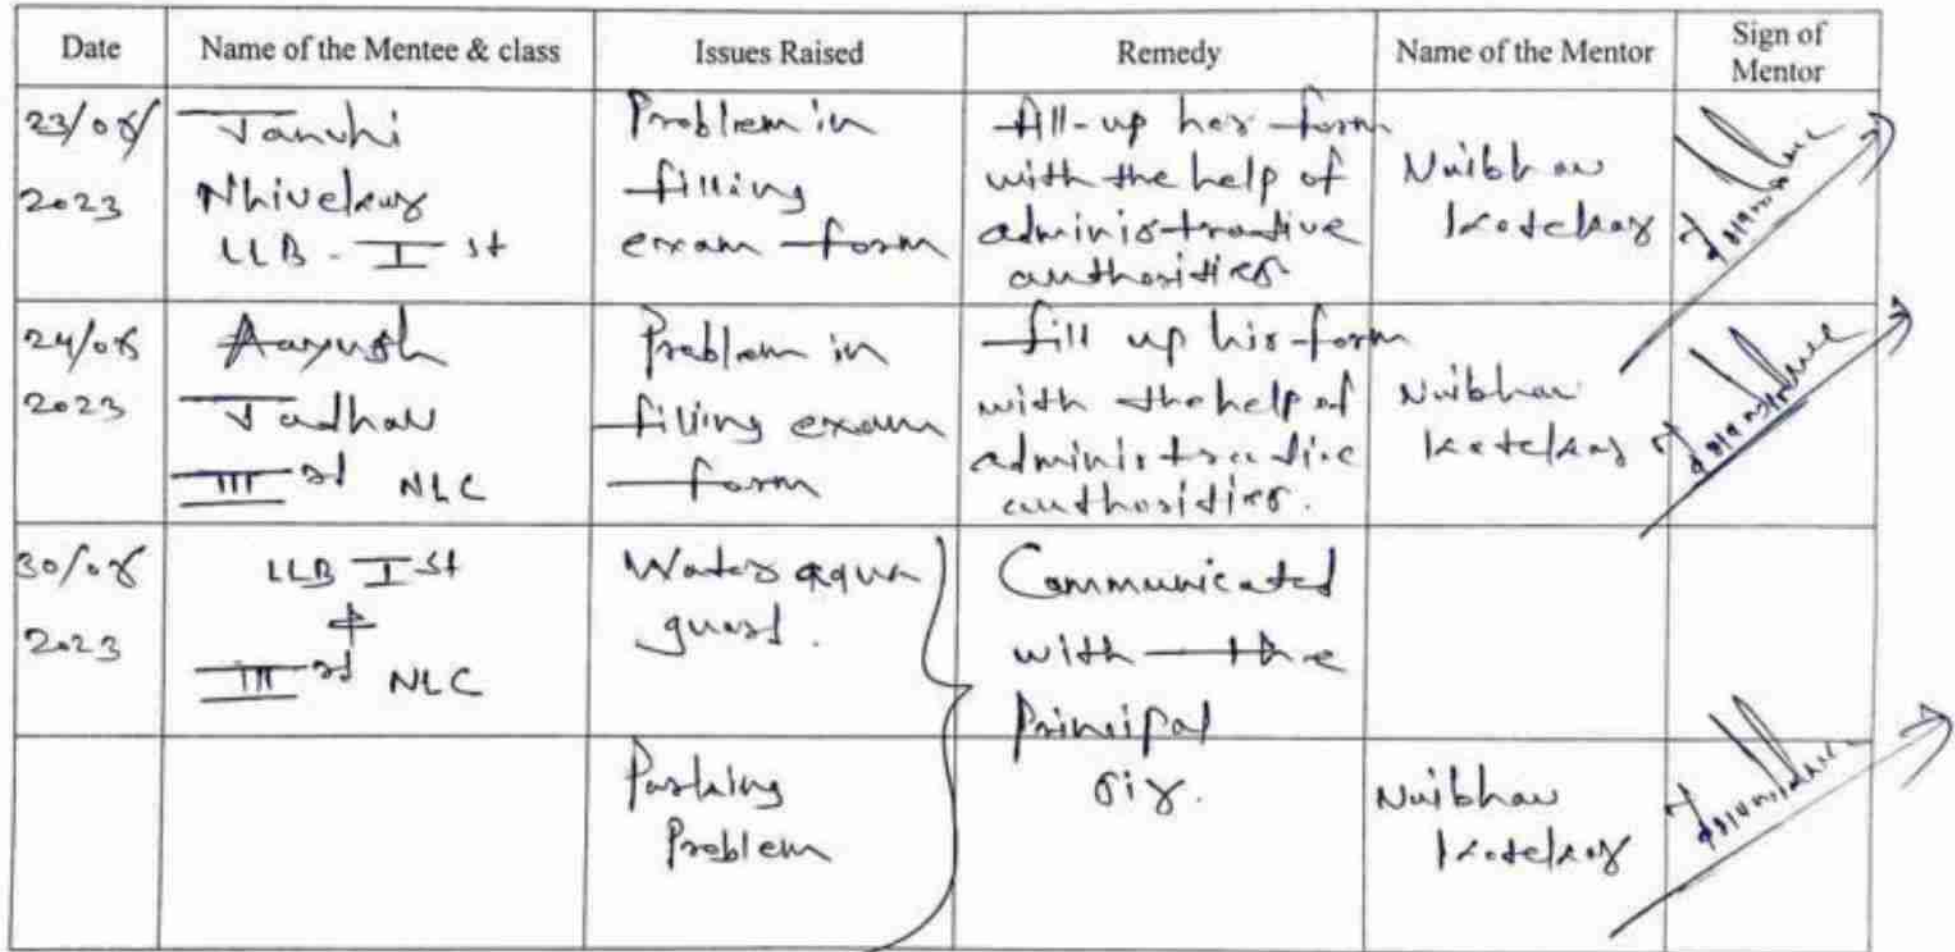 Date
Name of the Mentee & class
Issues Raised
Remedy
Name of the Mentor
Sign of
Mentor
23/08/
2023
Tanvhi
Nhivekar
LLB - I st
Problem in
filling
exam form
fill-up her form
with the help of
administrative
authorities
Kotekar
24/08
2023
Aayush
Jadhav
III rd NLC
Problem in
filling exam
form
fill up his form
with the help of
administrative
authorities.
Kotekar
30/08
2023
LLB I st
&
III rd NLC
Water aqua
guard.
Communicated
with the
Principal
sir.
Parking
Problem
Kotekar